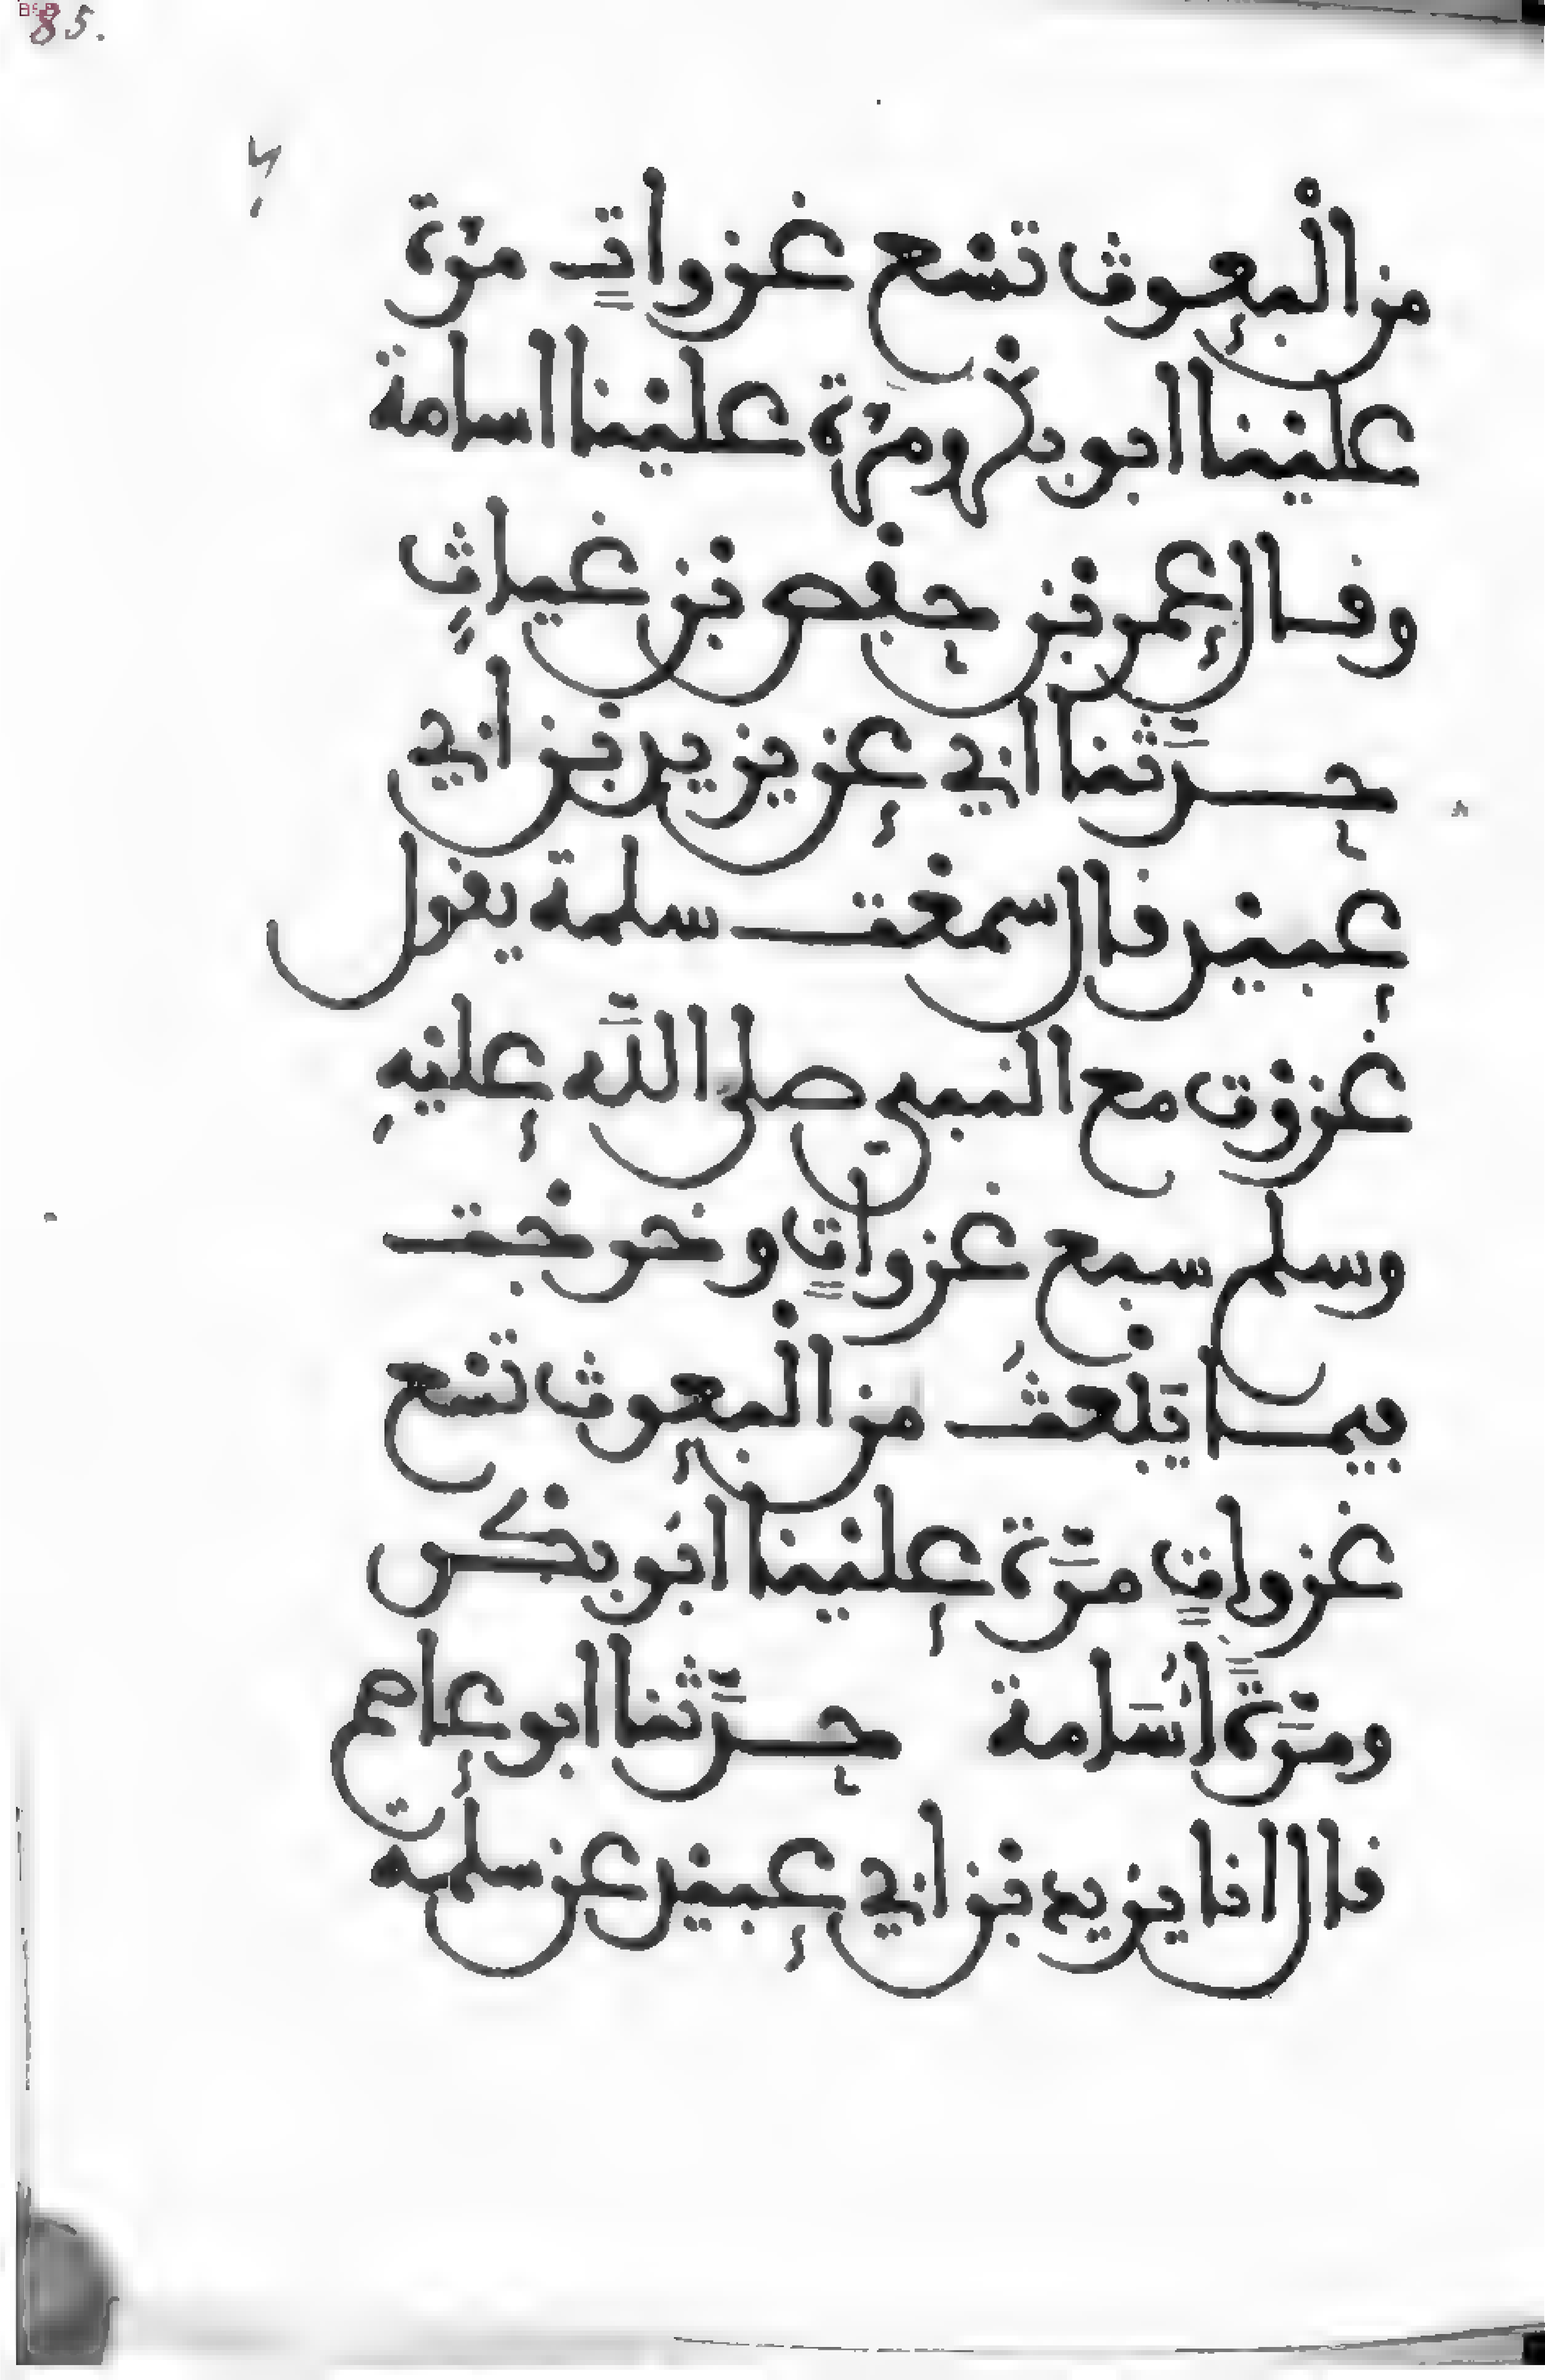 85.
من الْبعوث تسْع غزواتٍ مرّة
عليْنا ابو بكْر ومرّة عليْنا اسامة
وقال عمر بْن حفْص بْن غياثٍ
حدّثنا ابي عن يزيد بْن ابي
عبيْد قال سمعْت سلمة يقول
غزوْت مع النبي صلى اللّه عليْهِ
وسلم سبع غزواتٍ وخرجْت
فيما يَبْعثُ من الْبعوث تسْع
غزواتٍ مرَّة عليْنا ابُو بكْر
ومرَّةً اُسَامة حدَّثنا ابو عاصم
قال انا يزيد بْن ابي عبيْد عن سلمة